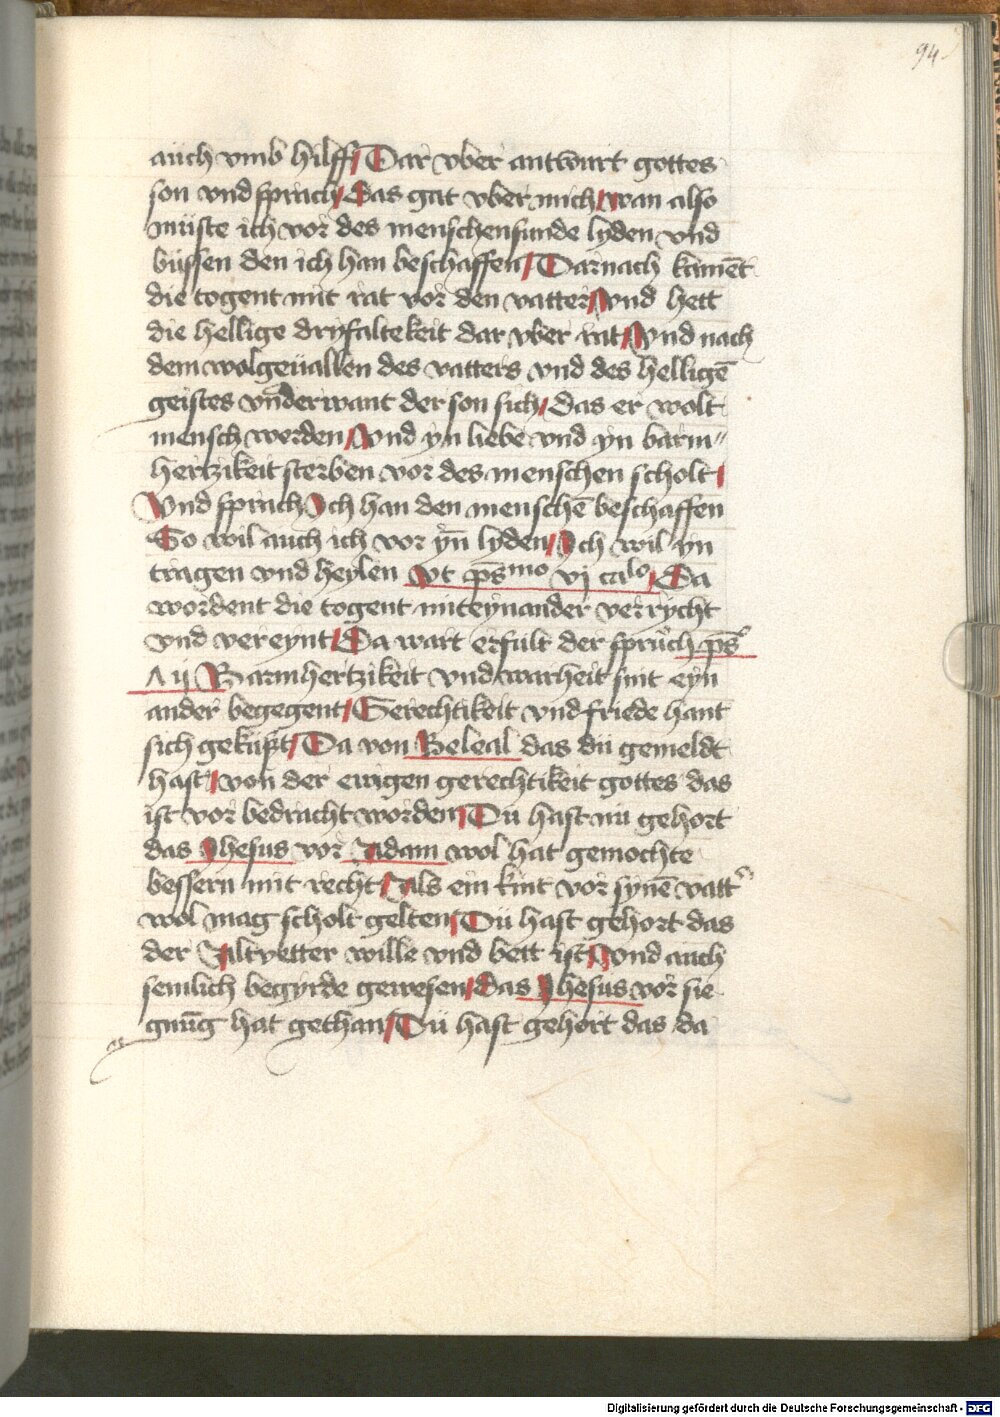 94
auch vmb hilff / Dar vber antwurt gottes
son vnd sprach / Das gat vber mich / wan also
müste ich vor des menschen sunde lyden vnd
büssen den ich han beschaffen / Darnach kamēt
die togent mit rat vor den vatter / Vnd hett
die hellige dryfaltekeit dar vber rat / Vnd nach
dem wolgeuallen des vatters vnd des helligē
geistes vnderwant der son sich / Das er wolt
mensch werden / Vnd yn liebe vnd yn barm〃
hertzikeit sterben vor des menschen scholt /
Vnd sprach Ich han den menschē beschaffen
So wil auch ich vor yn̄ lyden / Ich wil yn
tragen vnd heylen Vt ps̄mo vj calo / Da
wordent die togent miteynander verrycht
vnd vereynt / Da wart erfult der spruch ps̄
Λ ij Barmhertzikeit vnd warheit sint eyn
ander begegent / Gerechtikeit vnd friede hant
sich geküst / Da von Beleal das dü gemeldt
hast / von der ewigen gerechtikeit gottes das
ist vor bedracht worden / Dü hast nü gehort
das Jhesus vor Adam wol hat gemochte
bessern mit recht / Als ein kint vor synē vatt̓
wol mag scholt gelten / Dü hast gehort das
der Altvetter wille vnd bett ist / Vnd auch
semlich begyrde gewesen / Das Jhesus vor sie
gnūg hat gethan / Dü hast gehort das da
Digitalisierung gefördert durch die Deutsche Forschungsgemeinschaft - DFG